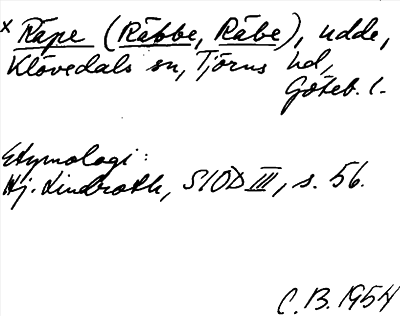 x Råpe (Råbbe, Råbe), udde,
Klövedals sn, Tjörns hd,
Göteb. l.
Etymologi:
Hj. Lindroth, SIOD III, s. 56.
C.B. 1954